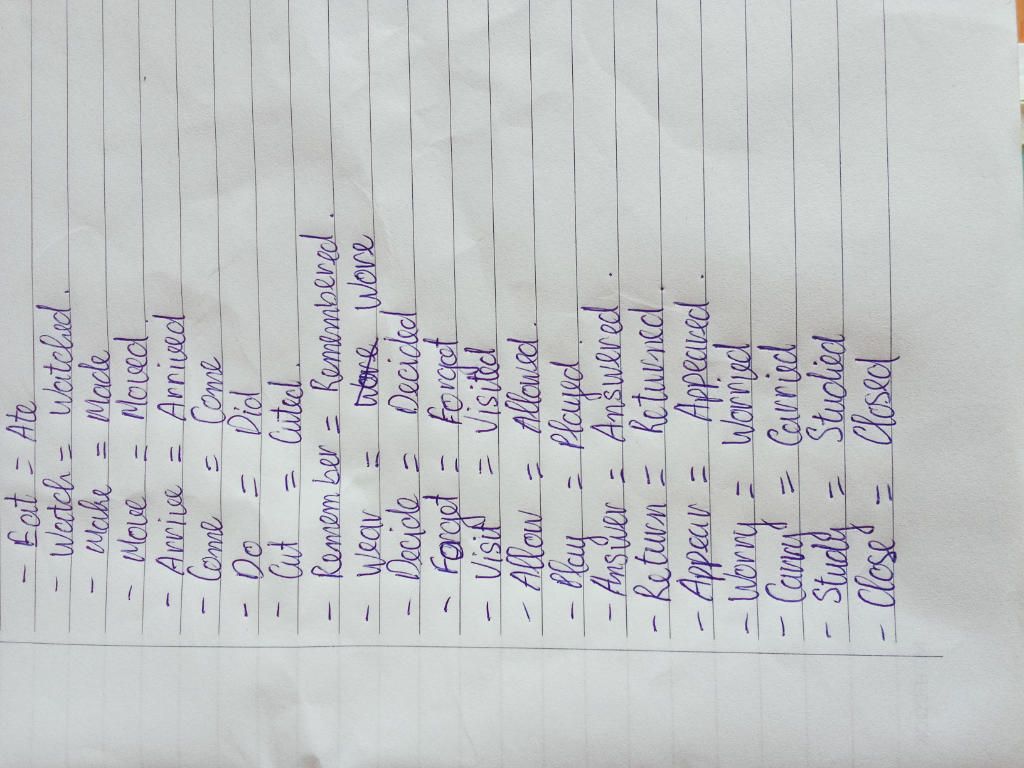 - Eat = Ate
- Watch = Watched.
- Make = Made
- Move = Moved
- Arrive = Arrived
- Come = Come
- Do = Did
- Cut = Cuted.
- Remember = Remembered.
- Wear = Wore
- Decide = Decided
- Forget = Forgot
- Visit = Visited
- Allow = Allowed.
- Play = Played.
- Answer = Answered.
- Return = Returned.
- Appear = Appeared.
- Worry = Worried
- Carry = Carried
- Study = Studied
- Close = Closed